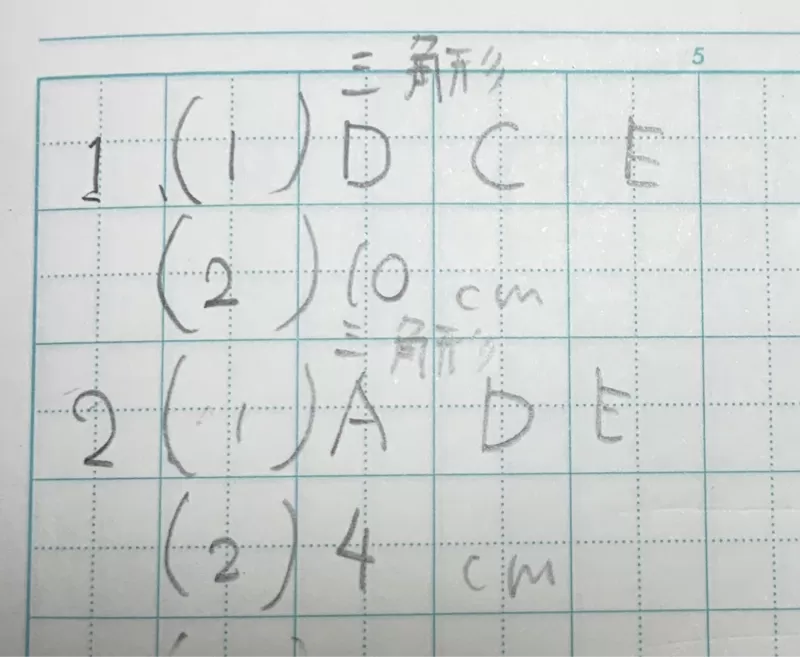 5
三角形
1、(1) D C E
(2) 10 cm
三角形
2 (1) A D E
(2) 4 cm